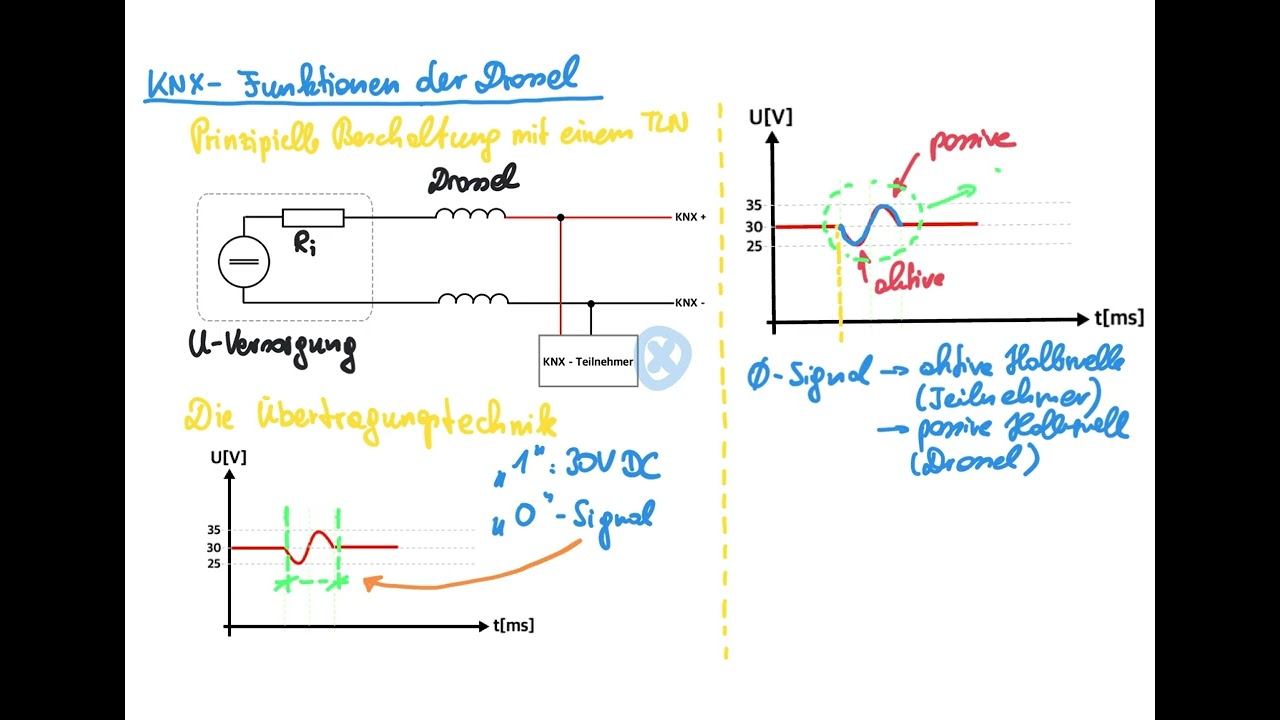 KNX- Funktionen der Drossel
Prinzipielle Beschaltung mit einem TLN
Drossel
KNX +
Ri
KNX -
U-Versorgung
KNX - Teilnehmer
X
Die Übertragungstechnik
U[V]
„1“: 30V DC
„0“-Signal
35
30
25
t[ms]
U[V]
passive
35
30
25
aktive
t[ms]
0-Signal → aktive Halbwelle
(Teilnehmer)
→ passive Halbwelle
(Drossel)